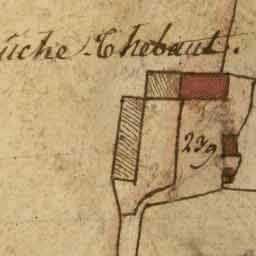 ûche Thebaut.
239